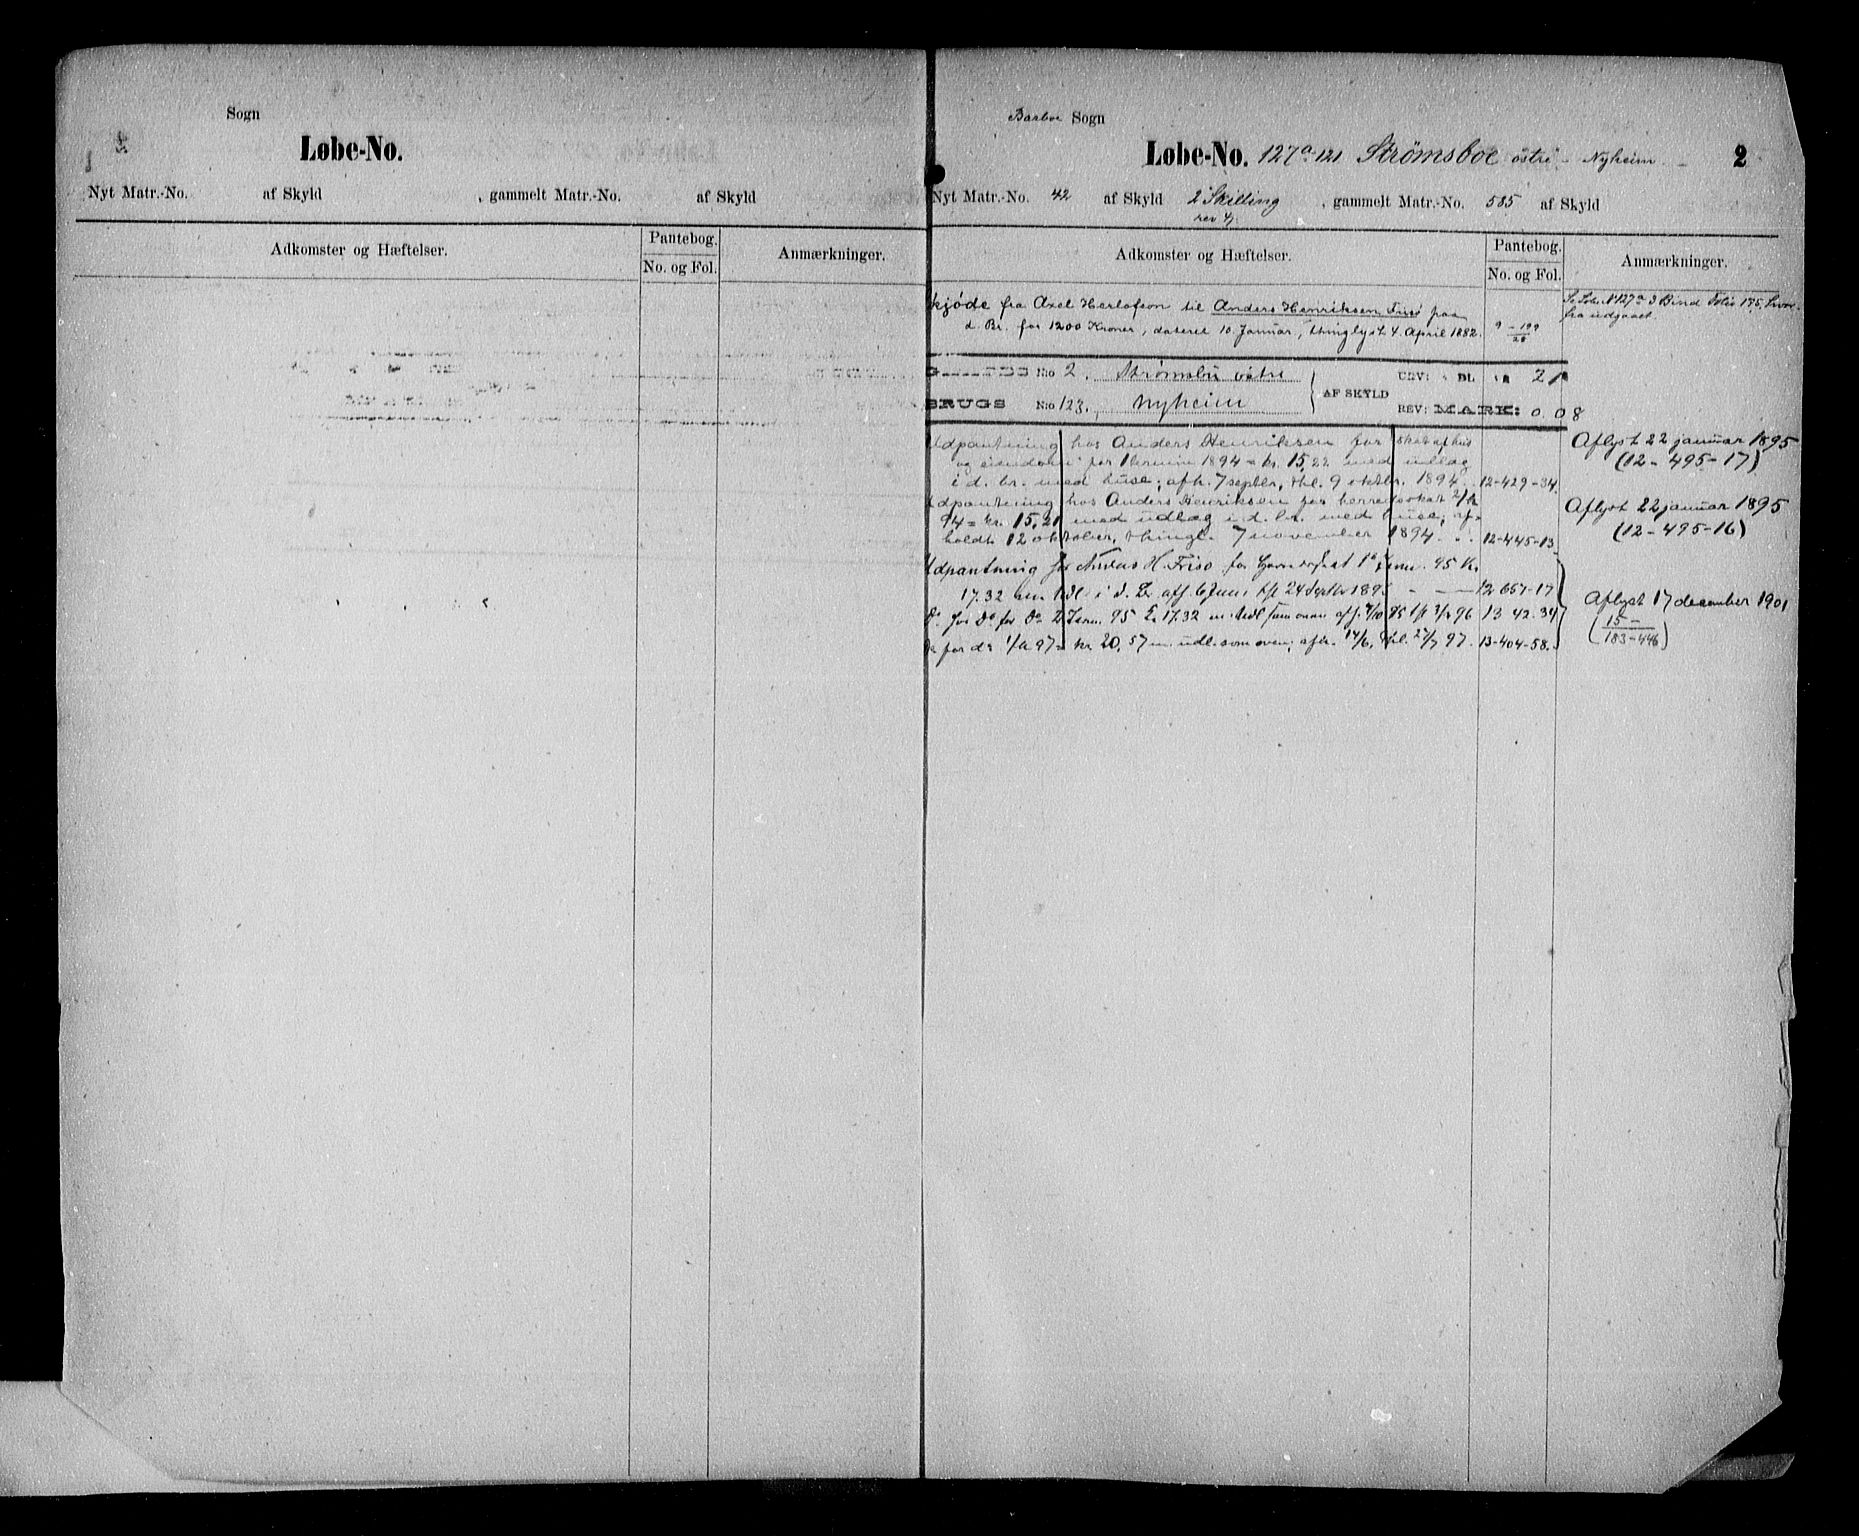 Sogn
Løbe-No.
Nyt Matr.-No. af Skyld , gammelt Matr.-No. af Skyld
Adkomster og Hæftelser.
Pantebog.
No. og Fol.
Anmærkninger.
Barboe Sogn
Løbe-No. 127a 121 Strømsboe østre - Nyheim - 2
Nyt Matr.-No. 42 af Skyld 2 Skilling , gammelt Matr.-No. 585 af Skyld
Adkomster og Hæftelser.
Pantebog.
No. og Fol.
Anmærkninger.
kjøde fra Axel Herlofson til Anders Henriksen Frisø paa
d. Br. for 1200 Kroner, dateret 10 Januar, thinglyst 4 April 1882.
9 - 199
/28
Se Løbe N 127a 3 Bind Folio 175, hvor-
fra udgaaet.
No 2. Strømsbu østre
AF SKYLD
21
BRUGS No 123. Nyheim
REV: MARK: 0.08
Udpantning hos Anders Henriksen for skat af hus
og eiendom for 1 termin 1894 = kr. 15,22 med udlæg
i d. br. med huse; afh. 7 septbr, thl. 9 oktbr. 1894. 12-429-34.
Aflyst 22 januar 1895
(12-495-17)
Udpantning hos Anders Henriksen for herredsskat
94 = kr. 15,21 med udlæg i d. br. med huse; af-
holdt 12 oktober, thingl. 7 november 1894 . . 12-445-13.
Aflyst 22 januar 1895
(12-495-16)
Udpantning hos Anders H. Frisø for 95 Kr
17.32 i d. Br afh 6 Juni 24 Septbr 1895 - - 12 657-17
Do hos Do for Do 2 Term. 95 Kr 17.32 m. Udl som oven afh. 13 42. 34
Do for do 97 = kr. 20,57 m. udl. som oven; afh. 14/6, thl. 27/7 97. 13-404-58.
Aflyst 17 december 1901
(15 -
183-446)